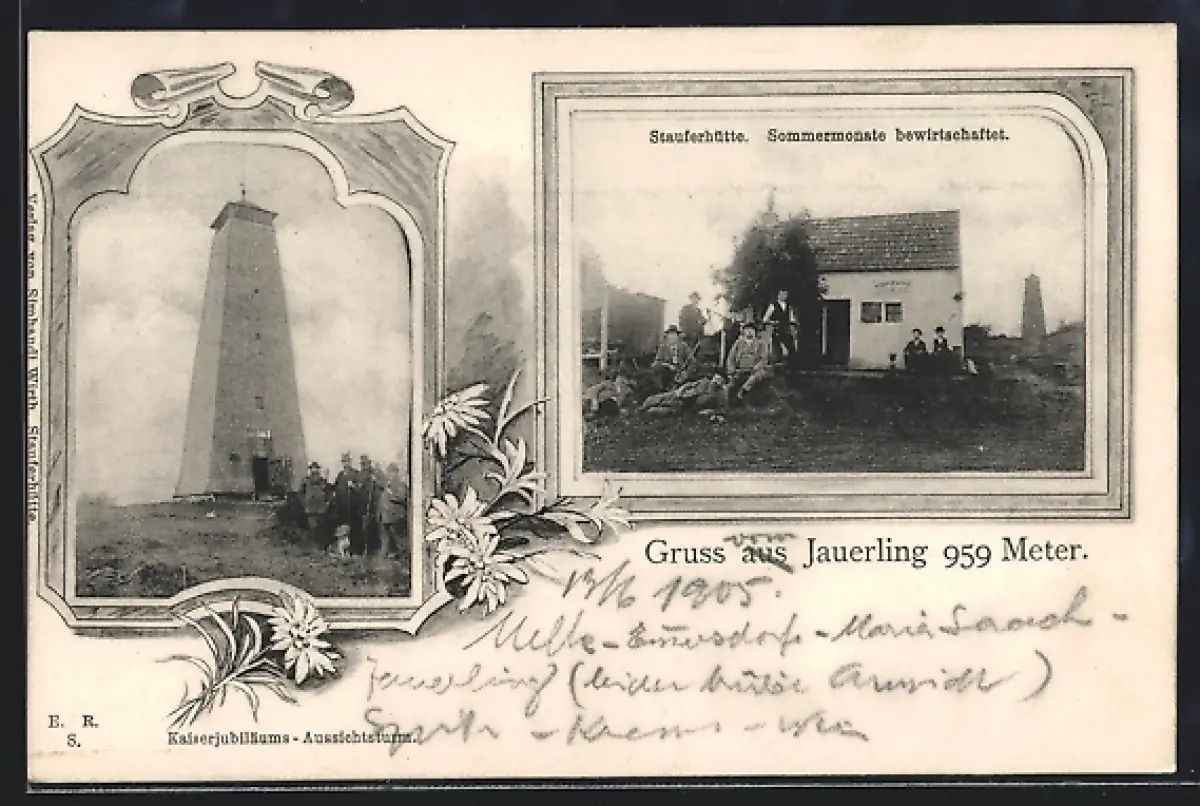 Stauferhütte. Sommermonate bewirtschaftet.
Verlag von Simhandl Wirth Stauferhütte
Gruss aus Jauerling 959 Meter.
vom
13/6 1905.
Melk - Emmersdorf - Maria Laach -
Jauerling (leider Aussicht)
Spitz - Krems - Wien
E. R.
S.
Kaiserjubiläums-Aussichtsturm.